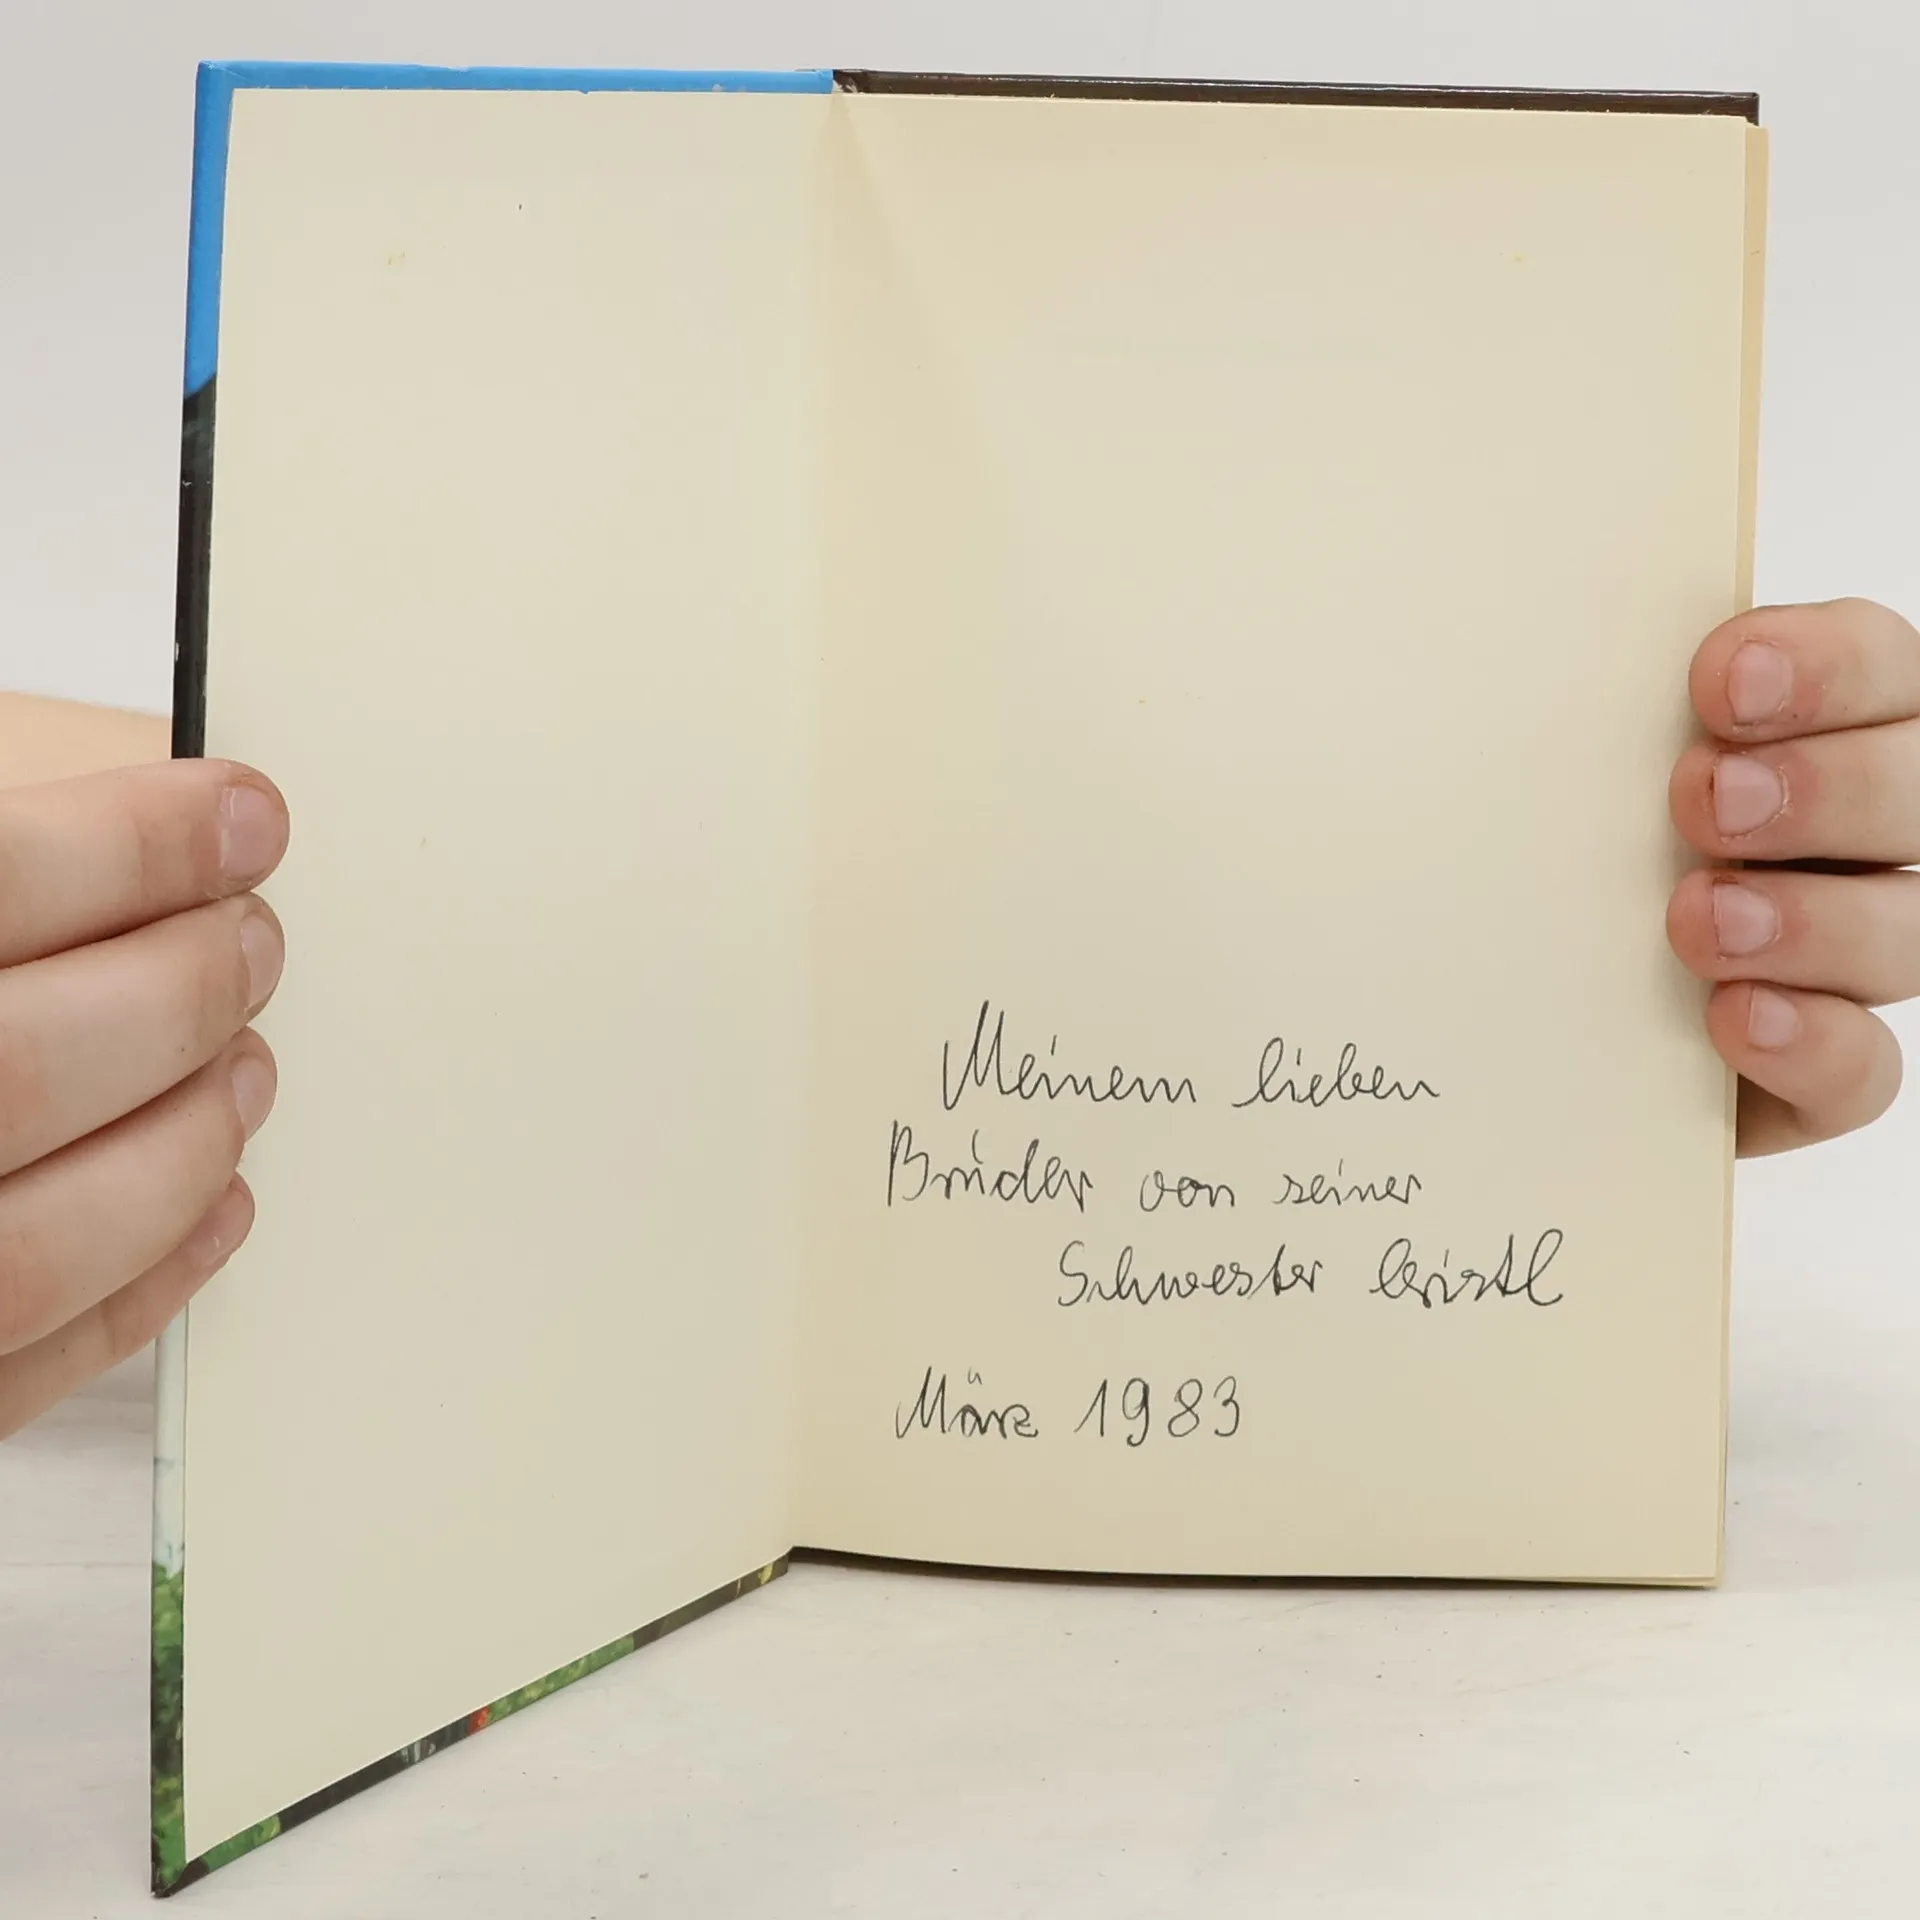 Meinem lieben
Bruder von seiner
Schwester Christl
März 1983